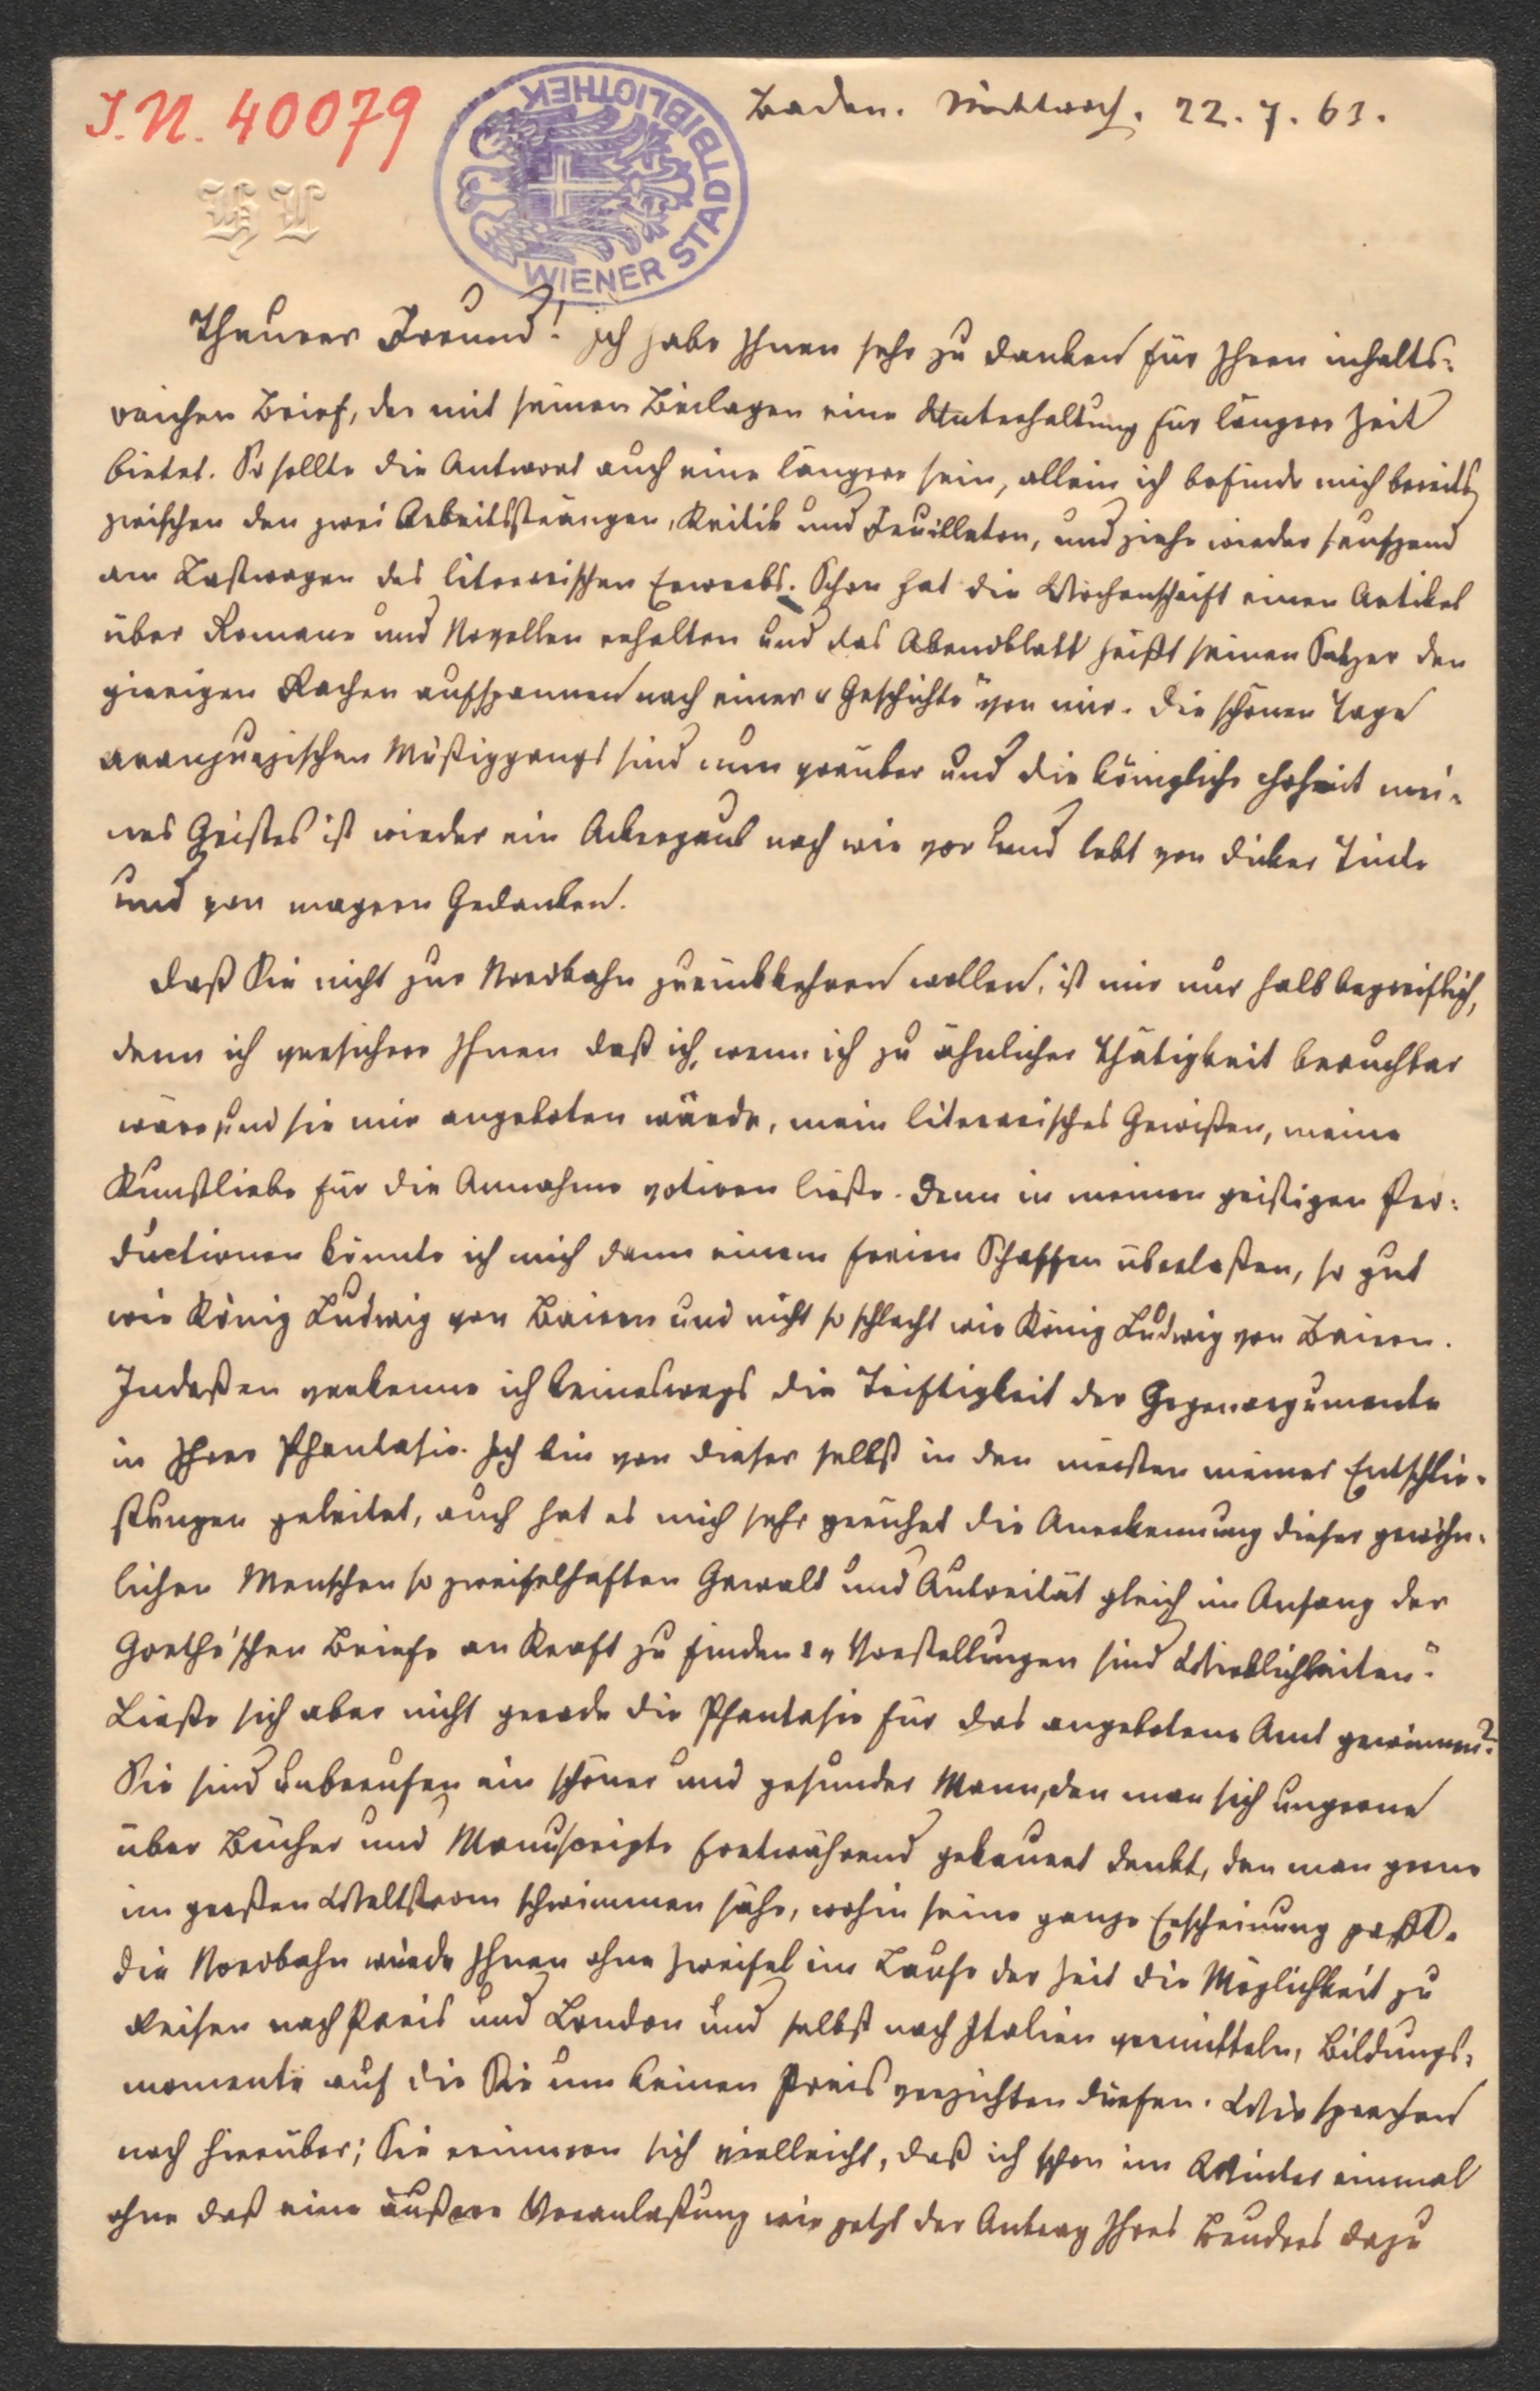 I.N. 40079
WIENER STADTBIBLIOTHEK
HL
Baden. Mittwoch. 22.7.63.
Theurer Freund! Ich habe Ihnen sehr zu danken für Ihren inhalts-
reichen Brief, der mit seinen Beilagen eine Unterhaltung für längere Zeit
bietet. So sollte die Antwort auch eine längere sein, allein ich befinde mich bereits
zwischen den zwei Arbeitssträngen, Kritik und Feuilleton, und ziehe wieder seufzend
am Lastwagen des literarischen Erwerbs. Schon hat die Wochenschrift einen Artikel
über Romane und Novellen erhalten und das Abendblatt heißt seinen Setzer den
gierigen Rachen aufspannen nach einer „Geschichte" von mir. Die schönen Tage
aranjuezischen Müßiggangs sind nun vorüber und die königliche Hoheit mei-
nes Geistes ist wieder ein Ackergaul nach wie vor und lebt von dicker Tinte
und von magern Gedanken.
Daß Sie nicht zur Nordbahn zurückkehren wollen, ist mir nur halb begreiflich,
denn ich versichere Ihnen daß ich, wenn ich zu ähnlicher Thätigkeit brauchbar
wäre und sie mir angeboten würde, mein literarisches Gewißen, meine
Kunstliebe für die Annahme votiren ließe. Denn in meinen geistigen Pro-
ductionen könnte ich mich dann einem freien Schaffen überlaßen, so gut
wie König Ludwig von Baiern und nicht so schlecht wie König Ludwig von Baiern.
Indeßen verkenne ich keineswegs die Triftigkeit der Gegenargumente
in Ihrer Phantasie. Ich bin von dieser selbst in den meisten meiner Entschlie-
ßungen geleitet, auch hat es mich sehr gerührt die Anerkennung dieser gewöhn-
lichen Menschen so zweifelhaften Gewalt und Autorität gleich im Anfang der
Goethe'schen Briefe an Kraft zu finden: „Vorstellungen sind Wirklichkeiten".
Ließe sich aber nicht gerade die Phantasie für das angebotene Amt gewinnen?
Sie sind unberufen ein schöner und gesunder Mann, den man sich ungerne
über Bücher und Manuscripte fortwährend gekauert denkt, den man gerne
im großen Weltstrom schwimmen sähe, wohin seine ganze Erscheinung paßt.
Die Nordbahn würde Ihnen ohne Zweifel im Laufe der Zeit die Möglichkeit zu
Reisen nach Paris und London und selbst nach Italien vermitteln, Bildungs-
momente auf die Sie um keinen Preis verzichten dürfen. Wir sprechen
noch hierüber; Sie erinnern sich vielleicht, daß ich schon im Winter einmal
ohne daß eine äußere Veranlaßung wie jetzt der Antrag Ihres Bruders dazu